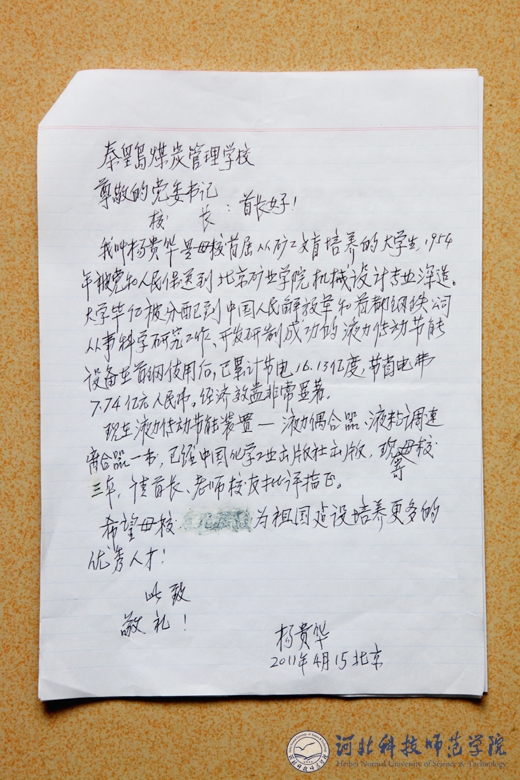 秦皇岛煤炭管理学校
尊敬的党委书记
校 长：首长好！
我叫杨贵华是母校首届从矿工文盲培养的大学生，1954
年被党和人民保送到北京矿业学院机械设计专业深造。
大学毕亿被分配到中国人民解放军和首都钢铁公司
从事科学研究工作、开发研制成功的液力传动节能
设备在首钢使用后，已累计节电16.13亿度，节省电费
7.74亿元人民币。经济效益非常显著。
现在液力传动节能装置—液力偶合器、液粘调速
离合器一书，已经中国化学工业出版社出版，母校
三年，请首长、老师校友批评指正。
希望母校 为祖国建设培养更多的
优秀人才！
此致
敬礼！
杨贵华
2011年4月15北京
河北科技师范学院
Hebei Normal University of Science & Technology